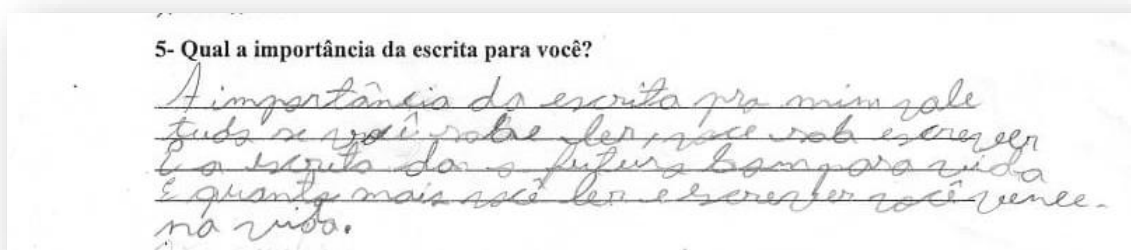 5- Qual a importância da escrita para você?
A importância da escrita pra mim vale
tudo se você sabe ler, você sab escrever
E a escrita da o futuro bom para vida
E quanto mais você ler e escrever você vence.
na vida.